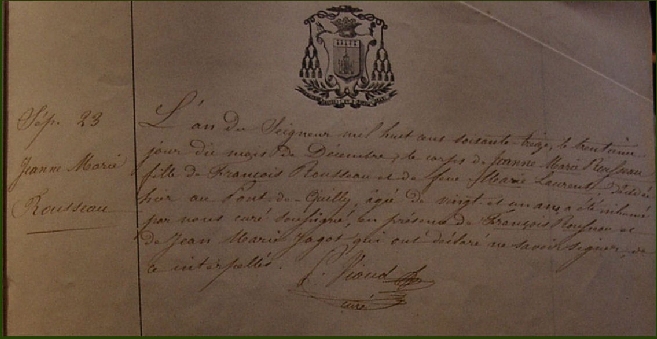 Sép. 23
Jeanne Marie
Rousseau
L'an du Seigneur mil huit cent soixante-treize, le trente unième
jour du mois de Décembre, le corps de Jeanne Marie Rousseau
fille de François Rousseau et de Marie Laurent décédée
hier au Pont de Guilly, âgé de vingt et un ans a été inhumé
par nous curé soussigné, en présence de François Rousseau et
de Jean Marie Jagot qui ont déclaré ne savoir signer, de
ce interpellés.
curé